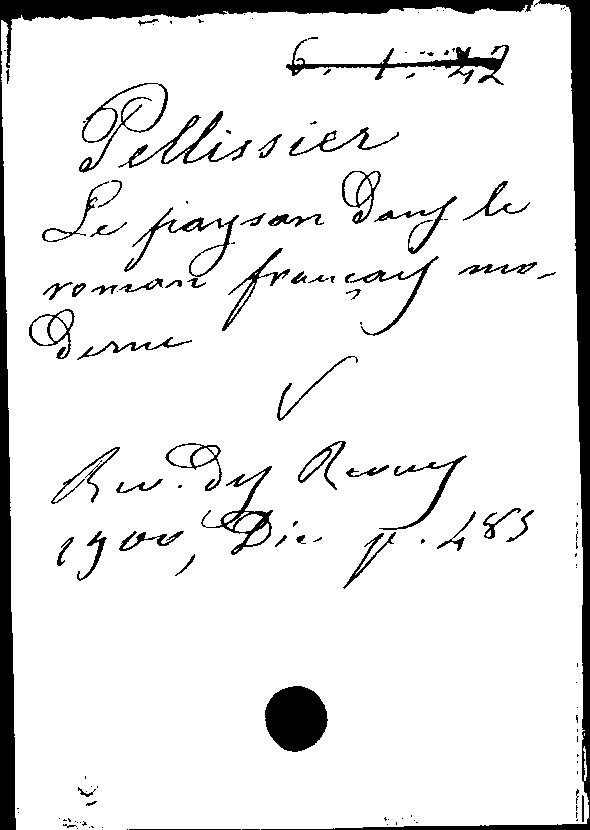 6. 1. 42
Pellissier
Le paysan dans le
roman français mo-
derne
Rev. des Revues
1900, Déc. p. 485